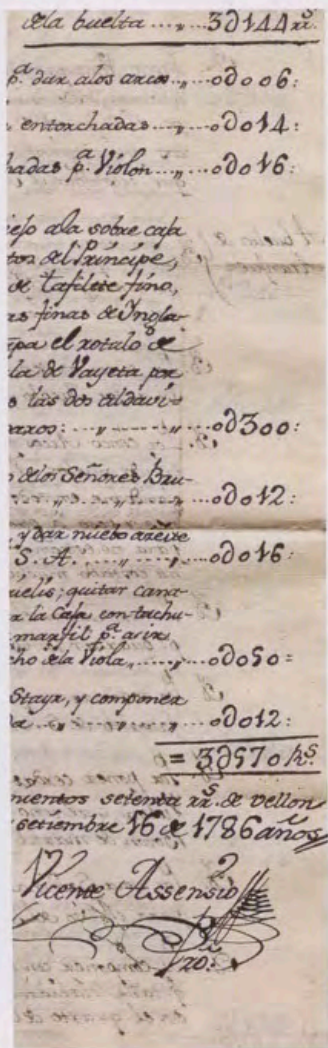 de la buelta ... „ ... 3∂144 rr.s
p.a dar alos arcos ... „ ... o∂oo6:
entorchadas ... „ ... o∂o14:
hadas p.a Violon ... „ ... o∂o16:
ala sobre caja
tor del Principe,
de tafilete fino,
as finas de Yngla-
apa el rotalo de
la de Vayeta por
s las dos aldavi-
paxos: ... „ ... o∂300:
delos Señores Bru-
... „ ... „ ... o∂o12:
, y dar nuebo azeite
S. A. ... „ ... „ ... o∂o16:
uelis; quitar cant-
a la Caja con tachu-
marfil p.a asir
cho dela Viola, ... „ ... o∂o50=
Stayr, y componer
da ... „ ... „ ... o∂o12:
= 3∂570 r.s
nientos setenta rr.s de vellon
setiembre 16 de 1786 años
Vicente Assensio